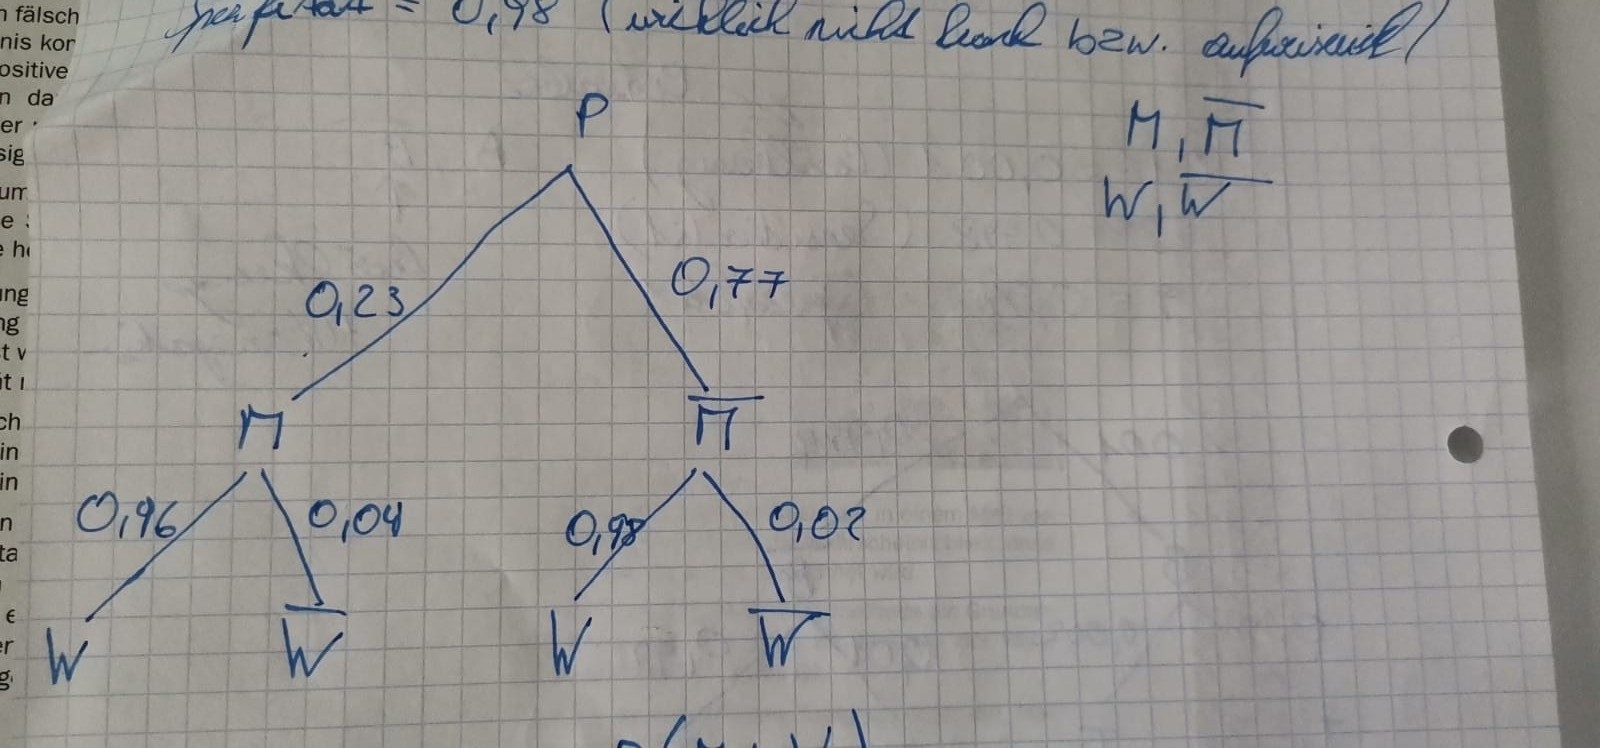 = 0,98 (wirklich nicht krank bzw. aufweisend)
P
M, M̅
W, W̅
0,23 0,77
M M̅
0,96 0,04 0,98 0,02
W W̅ W W̅
n fälsch
nis kor
ositive
n da
er
sig
um
e
e he
ung
ng
t v
it
ch
in
in
n
ta
e
er
g